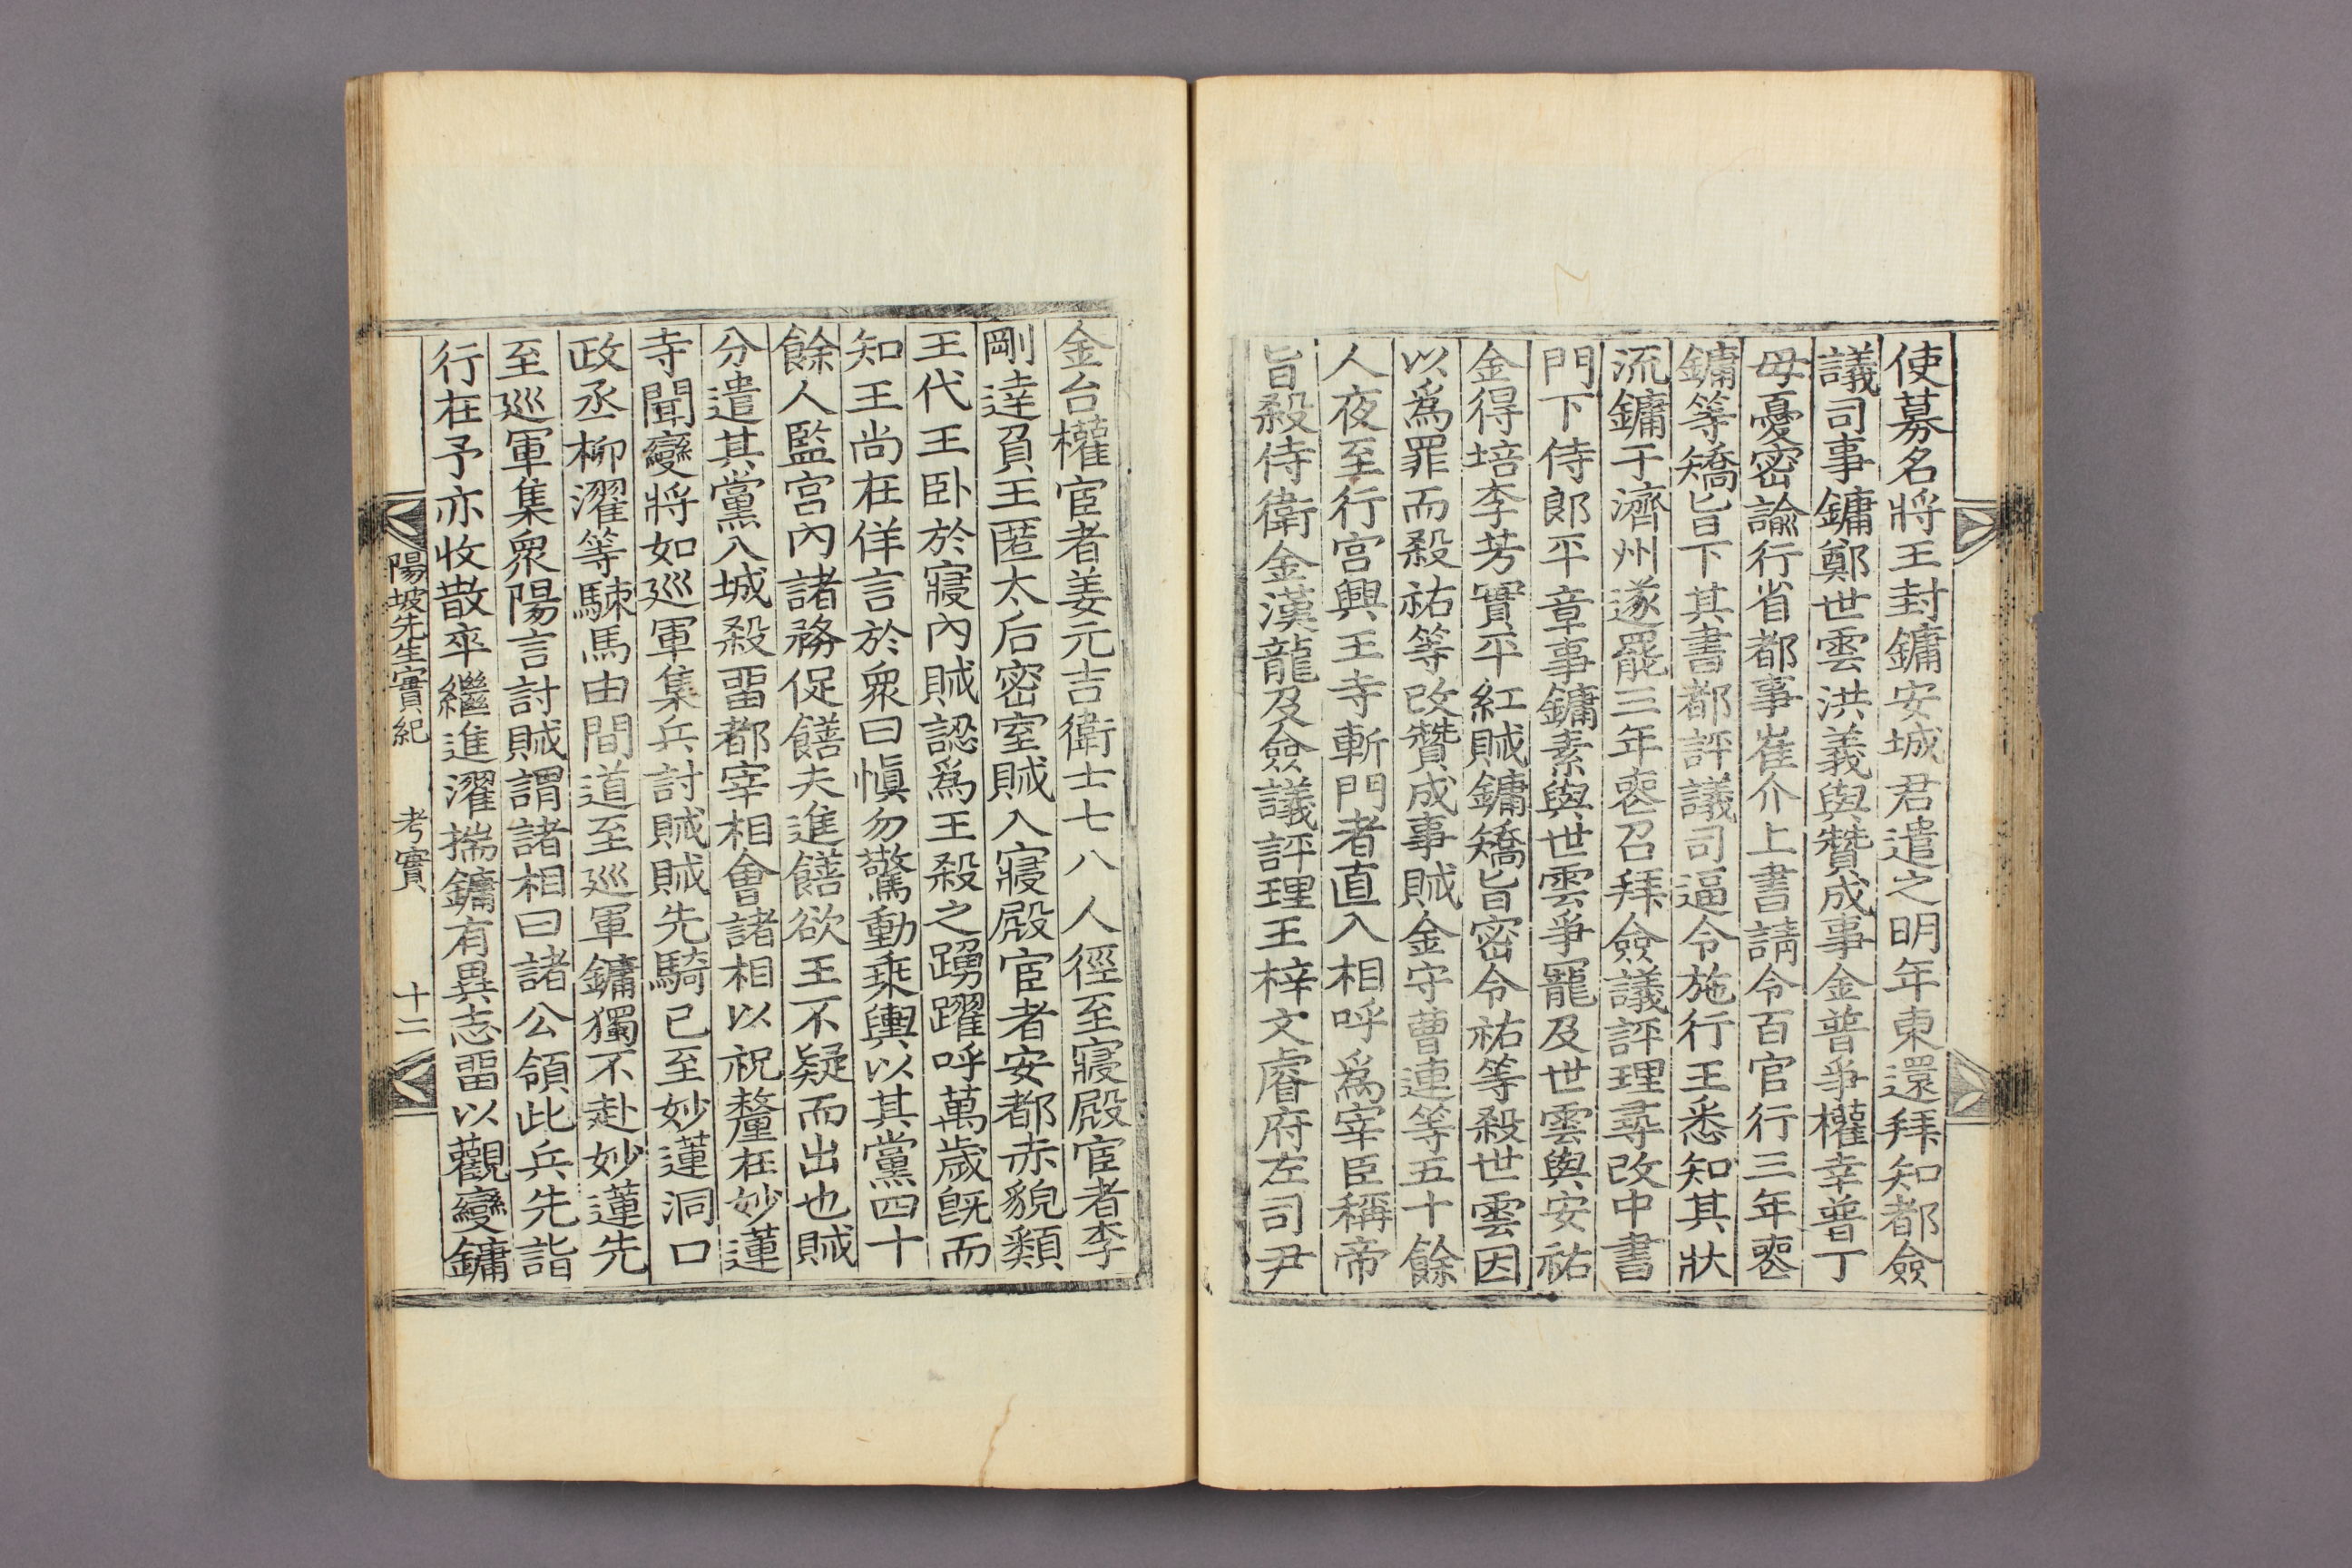 使募名將王封鏞安城君遣之明年東還拜知都僉
議司事鏞鄭世雲洪義與贊成事金普爭權幸普丁
母憂密諭行省都事崔介上書請令百官行三年喪
鏞等矯旨下其書都評議司逼令施行王悉知其狀
流鏞于濟州遂罷三年喪召拜僉議評理尋改中書
門下侍郎平章事鏞素與世雲爭寵及世雲與安祐
金得培李芳實平紅賊鏞矯旨密令祐等殺世雲因
以爲罪而殺祐等改贊成事賊金守曹連等五十餘
人夜至行宮興王寺斬門者直入相呼爲宰臣稱帝
旨殺侍衛金漢龍及僉議評理王梓文睿府左司尹
金台權宦者姜元吉衛士七八人徑至寢殿宦者李
剛達負王匿太后密室賊入寢殿宦者安都赤貌類
王代王卧於寢內賊認爲王殺之踴躍呼萬歲旣而
知王尚在佯言於衆曰愼勿驚動乘輿以其黨四十
餘人監宮內諸務促饍夫進饍欲王不疑而出也賊
分遣其黨入城殺畱都宰相會諸相以祝釐在妙蓮
寺聞變將如巡軍集兵討賊賊先騎已至妙蓮洞口
政丞柳濯等騋馬由間道至巡軍鏞獨不赴妙蓮先
至巡軍集衆陽言討賊謂諸相曰諸公領此兵先詣
行在予亦收散卒繼進濯揣鏞有異志畱以觀變鏞
陽坡先生實紀 考實 十二